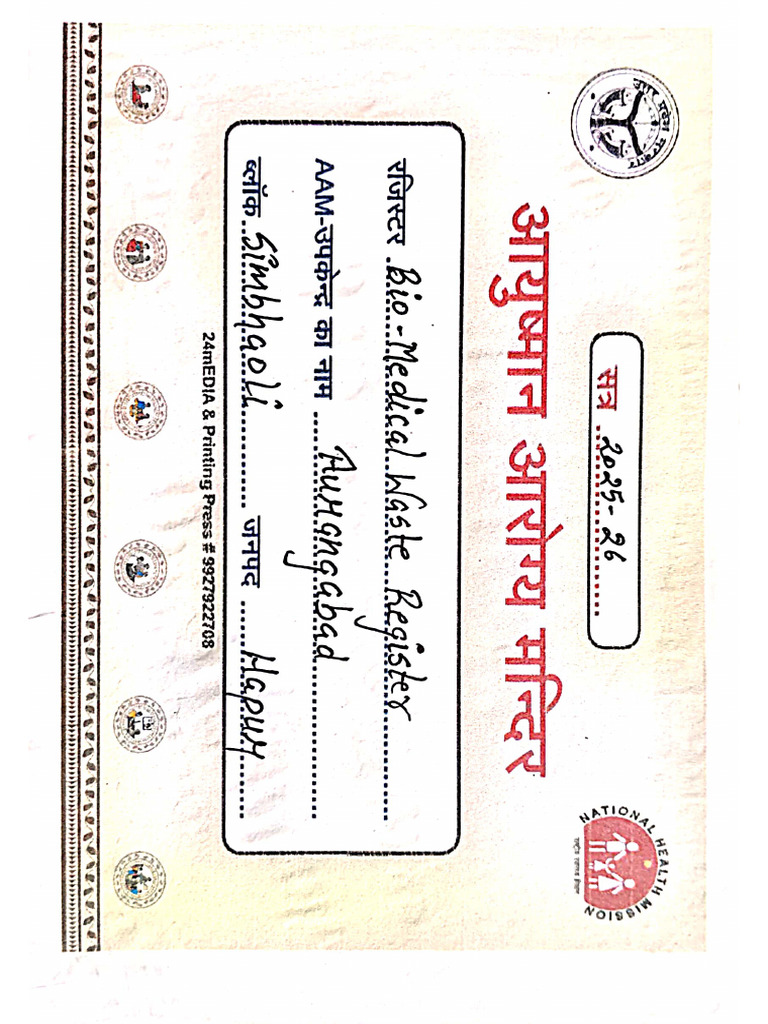 सत्र 2025-26
उत्तर प्रदेश सरकार
NATIONAL HEALTH MISSION
आयुष्मान आरोग्य मन्दिर
रजिस्टर Bio-Medical Waste Register
AAM-उपकेन्द्र का नाम Aurangabad
ब्लॉक Simbhaoli जनपद Hapur
24mEDIA & Printing Press # 9927922708